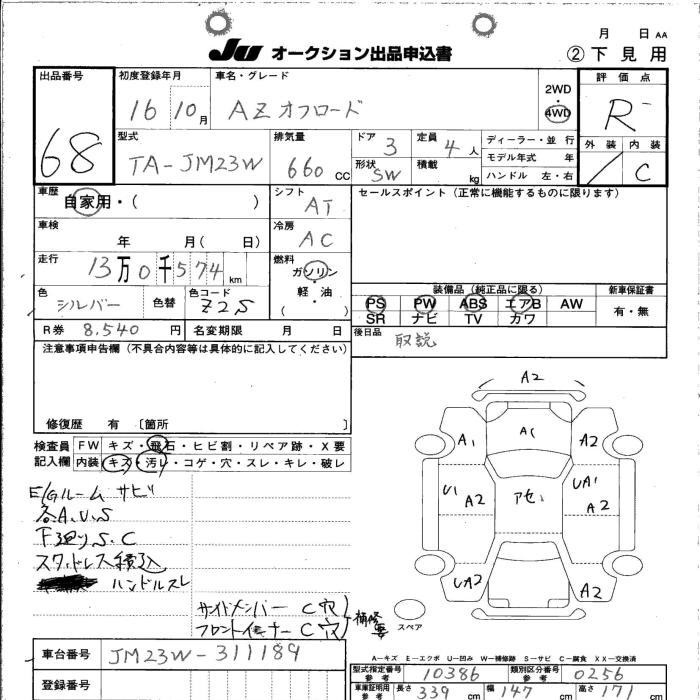 JU オークション出品申込書
月 日 AA
② 下見用
出品番号
68
初度登録年月
16 10月
車名・グレード
AZオフロード
2WD
4WD
評価点
R
外装 内装
/ C
型式
TA-JM23W
排気量
660 CC
ドア
3
形状
SW
定員
4 人
積載
kg
ディーラー・並行
モデル年式 年
ハンドル 左・右
車歴
自家用・( )
シフト
AT
セールスポイント (正常に機能するものに限ります)
車検
年 月( 日)
冷房
AC
走行
13万0千574km
燃料
ガソリン
軽・油
( )
色
シルバー
色替
色コード
Z2S
装備品 (純正品に限る)
新車保証書
PS PW ABS エアB AW
SR ナビ TV カワ
有・無
R券 8.540 円
名変期限 月 日
後日品
取説
注意事項申告欄 (不具合内容等は具体的に記入してください)
修復歴 有 [箇所 ]
検査員
記入欄
FW キズ・飛石・ヒビ割・リペア跡・X要
内装 キズ・汚レ・コゲ・穴・スレ・キレ・破レ
E/Gルーム サビ
各A.U.S
下廻りS.C
スタッドレス積込
ハンドルスレ
サイドメンバー C穴
フロントインナー C穴
補修要
A2
A1
AC
A2
U1
A2
アセ1
UA1
A2
UA2
A2
スペア
A−キズ E−エクボ U−凹み W−補修跡 S−サビ C−腐食 XX−交換済
車台番号
JM23W-311189
登録番号
型式指定番号
参考
10386
類別区分番号
参考
0256
車庫証明用
参考
長さ 339 cm
幅 147 cm
高さ 171 cm